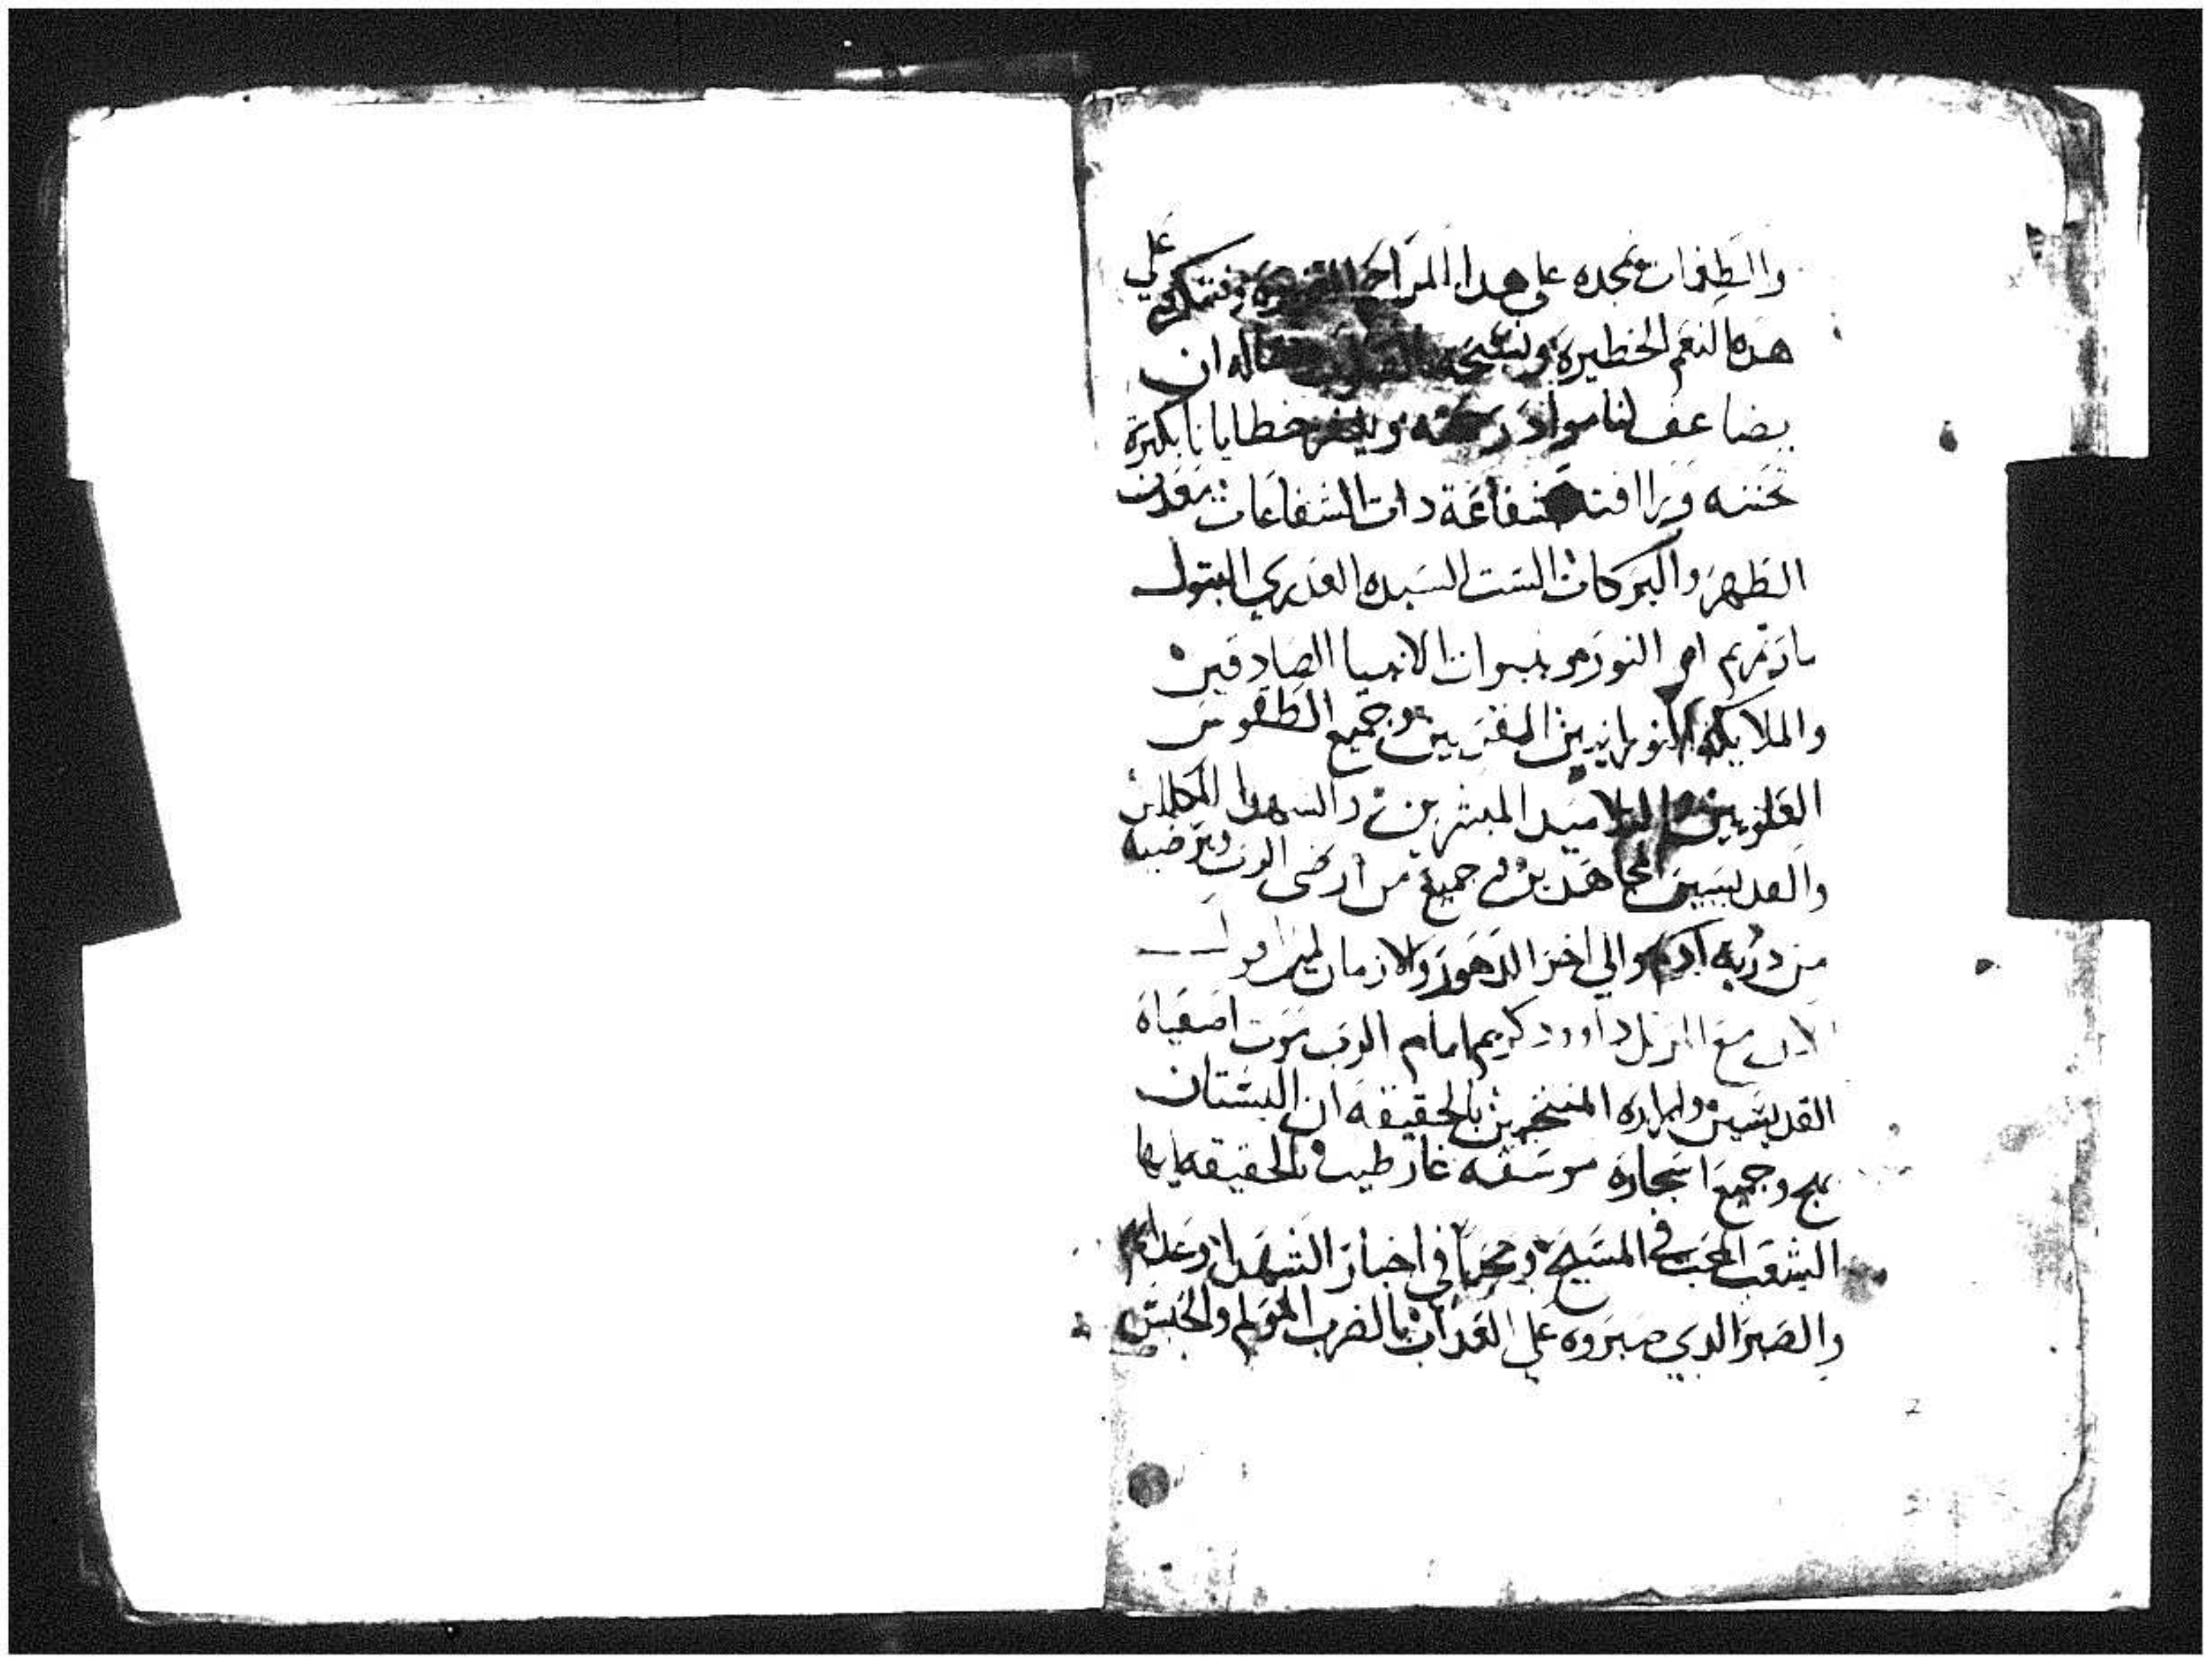 والطلبات نمجده على هدا المراحم ونشكره على
هده النعم الخطيرة ان
يضاعف لنا مواد رحمته ويغفر خطايانا بكثرة
تحننه ورافته شفاعة دات الشفاعات معدن
الطهر والبركات الست السيده العدري البتول
مارتمريم ام النور الانبيا الصادقين
والملايكه النورانيين المقربين وجميع الطقوس
العلويين التلاميد المبشرين والشهدا
والقديسين المجاهدين جميع من ارضى الرب ويرضيه
من درية ادم والي اخر الدهور والازمان امين
لان مع المرتل داوود كريم امام الرب موت اصفياه
القديسين وابراره المنتخبين بالحقيقه ان البستان
بهج وجميع اشجاره موسقه غار طيب بالحقيقه ايها
الشعب المحب في المسيح في اخبار الشهدا
والصبر الدي صبروه على العداب بالضرب المولم والحبس